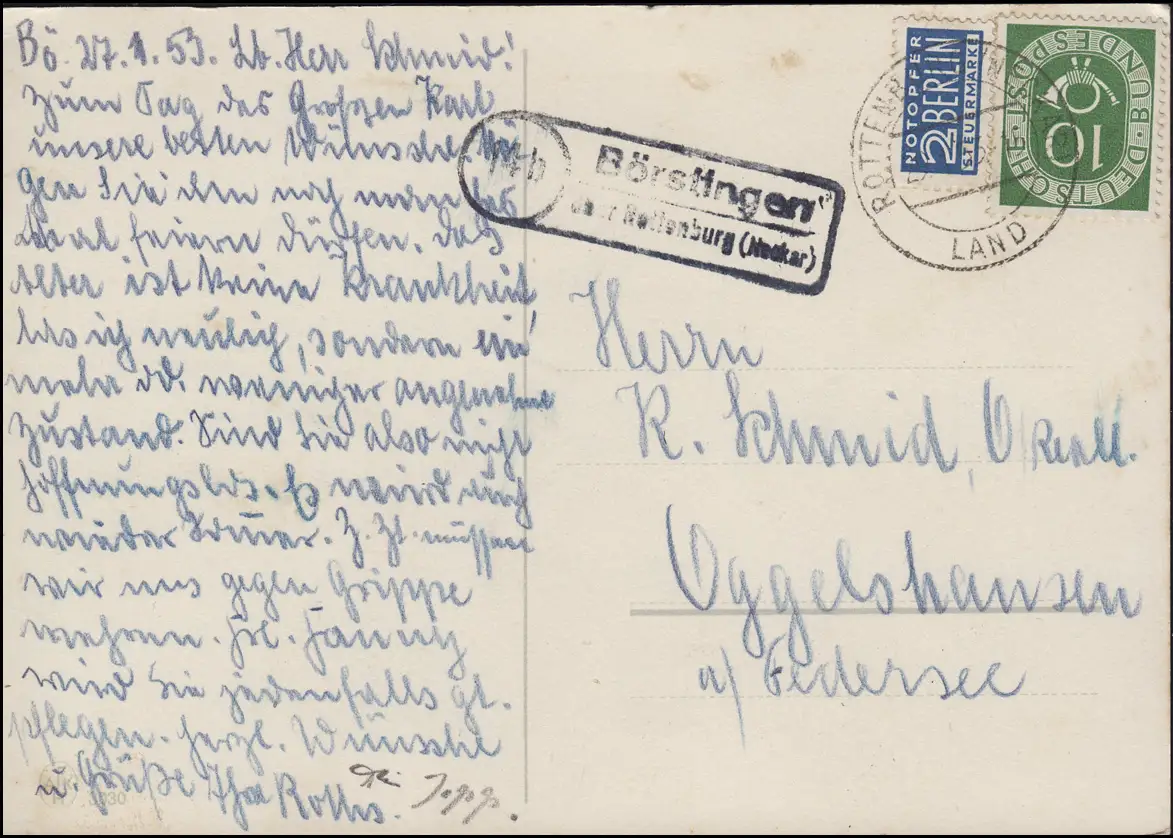 Bö. 27.1.53. Lb. Herr Schmid!
Zum Tag des Großen Karl
unsere besten Wünsche. Mö-
gen Sie ihn noch manches
Mal feiern dürfen. Das
Alter ist keine Krankheit,
las ich neulich, sondern ein
mehr od. weniger angenehmer
Zustand. Sind Sie also nicht
hoffnungslos. Es wird auch
wieder Z. Zt. müssen
wir uns gegen Grippe
wehren. Frl. Fanny
wird Sie jedenfalls gt.
pflegen. Herzl. Wünsche
u. Grüße Ihr
14b
Börstingen
über Rottenburg (Neckar)
NOTOPFER
2 BERLIN
STEUERMARKE
DEUTSCHE BUNDESPOST
10
LAND
Herrn
K. Schmid,
Oggelshausen
a/ Federsee